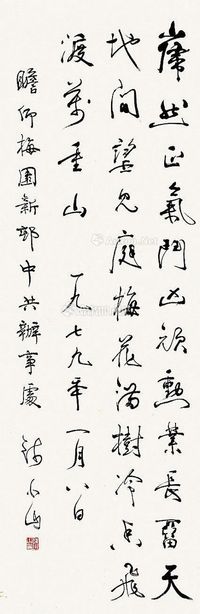 岸然正氣鬥凶頑勳業長留天
地間瞥見庭梅花滿樹冷香飛
渡萬重山 一九七九年一月八日
瞻仰梅園新邨中共辦事處